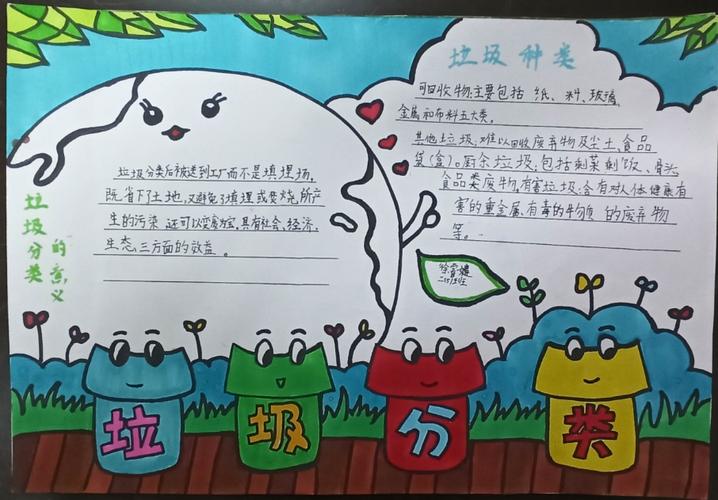 垃圾分类
的意义
垃圾分类后被送到工厂而不是填埋场,
既省下了土地,又避免了填埋或焚烧所产
生的污染,还可以变废为宝,具有社会、经济、
生态三方面的效益。
垃圾种类
可回收物主要包括 纸、料、玻璃,
金属和布料五大类。
其他垃圾,难以回收废弃物及尘土,食品
袋(盒)。厨余垃圾,包括剩菜剩饭、骨头
食品类废物,有害垃圾,含有对人体健康有
害的重金属、有毒的物质 的废弃物
等。
垃 圾 分 类